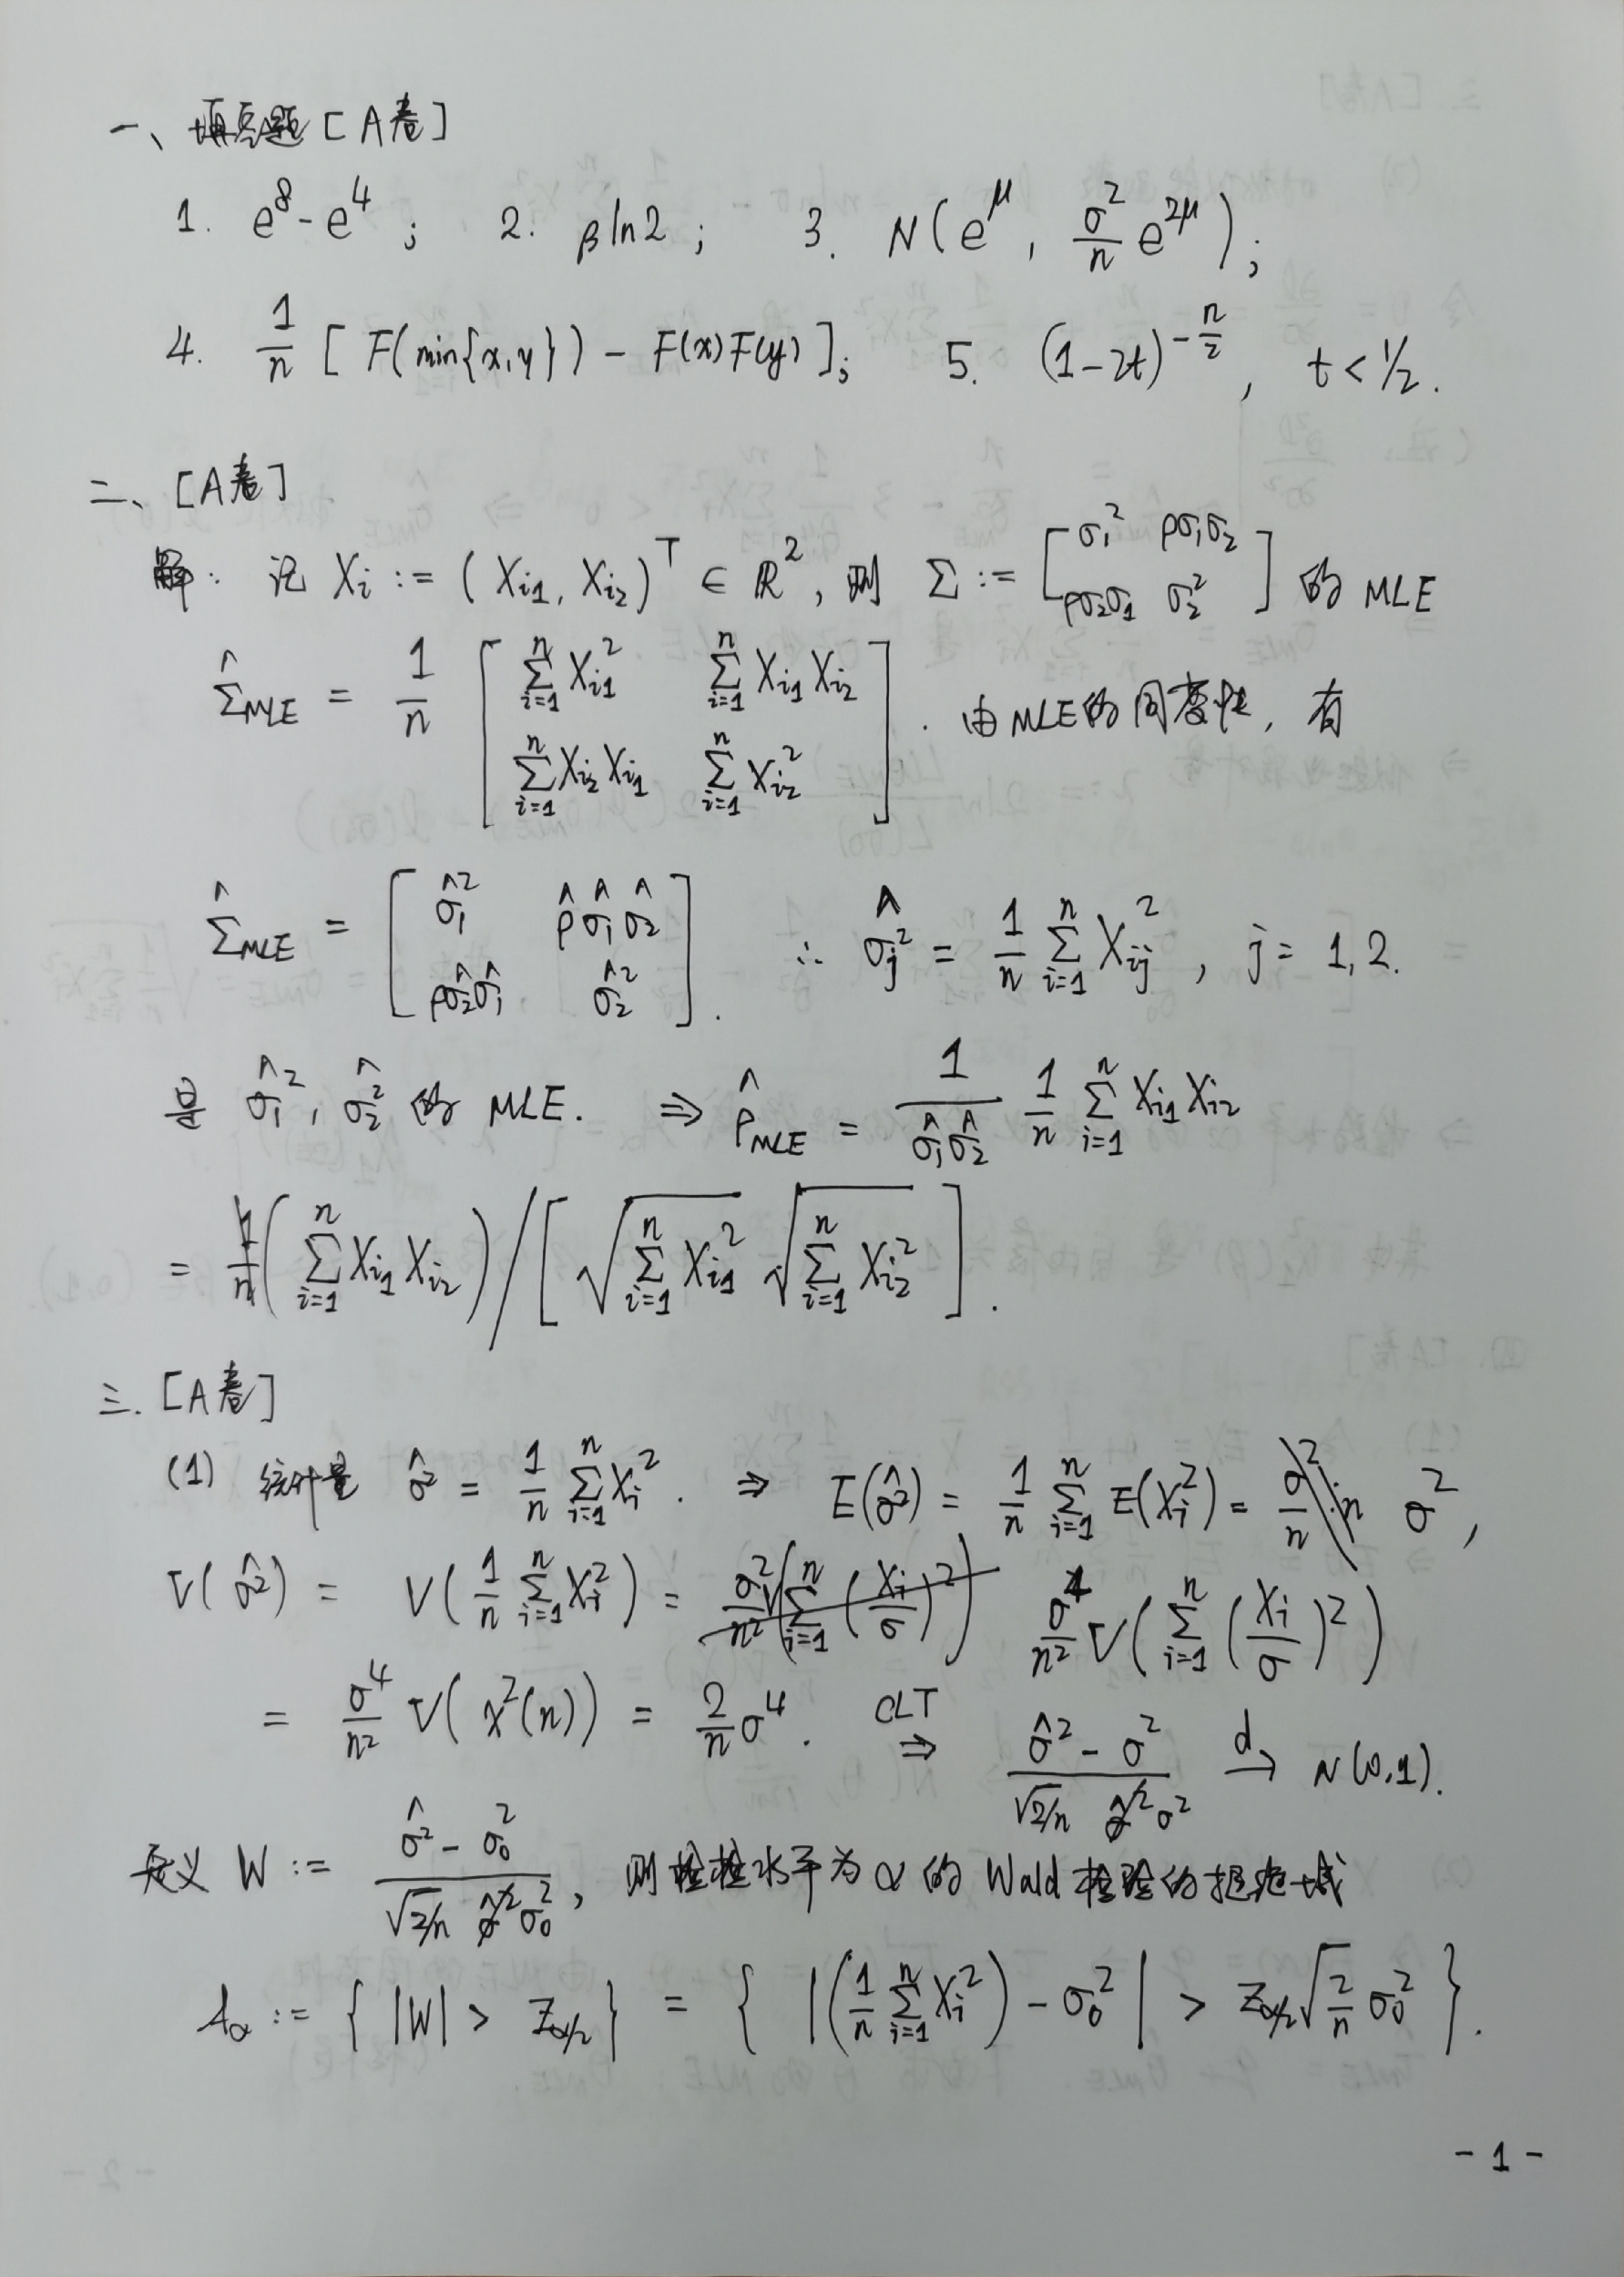 一、填空题 [A卷]
1. e⁸-e⁴ ; 2. βln2 ; 3. N(e^μ, σ²/n e^{2μ}) ;
4. 1/n [F(min{x,y}) - F(x)F(y)]; 5. (1-2t)^{-n/2}, t<1/2.
二、[A卷]
解: 记 X_i := (X_{i1}, X_{i2})^T ∈ ℝ², 则 Σ := [σ₁² ρσ₁σ₂; ρσ₂σ₁ σ₂²] 的 MLE
Σ̂_MLE = 1/n [Σ_{i=1}^n X_{i1}² Σ_{i=1}^n X_{i1}X_{i2}; Σ_{i=1}^n X_{i2}X_{i1} Σ_{i=1}^n X_{i2}²]. 由MLE的同变性, 有
Σ̂_MLE = [σ̂₁² ρ̂σ̂₁σ̂₂; ρσ̂₂σ̂₁ σ̂₂²]. ∴ σ̂_j² = 1/n Σ_{i=1}^n X_{ij}², j = 1,2.
是 σ̂₁², σ̂₂² 的 MLE. ⇒ ρ̂_MLE = 1/(σ̂₁σ̂₂) 1/n Σ_{i=1}^n X_{i1}X_{i2}
= (Σ_{i=1}^n X_{i1}X_{i2}) / [√(Σ_{i=1}^n X_{i1}²) √(Σ_{i=1}^n X_{i2}²)].
三. [A卷]
(1) 统计量 σ̂² = 1/n Σ_{i=1}^n X_i². ⇒ E(σ̂²) = 1/n Σ_{i=1}^n E(X_i²) = σ²,
V(σ̂²) = V(1/n Σ_{i=1}^n X_i²) = σ⁴/n² V(Σ_{i=1}^n (X_i/σ)²)
= σ⁴/n² V(χ²(n)) = 2/n σ⁴. CLT ⇒ (σ̂² - σ²)/(√(2/n) σ²) →^d N(0,1).
定义 W := (σ̂² - σ₀²)/(√(2/n) σ₀²), 则检检水平为α的 Wald 检验的拒绝域
A_α := { |W| > Z_{α/2} } = { |(1/n Σ_{i=1}^n X_i²) - σ₀²| > Z_{α/2} √(2/n) σ₀² }.
- 1 -